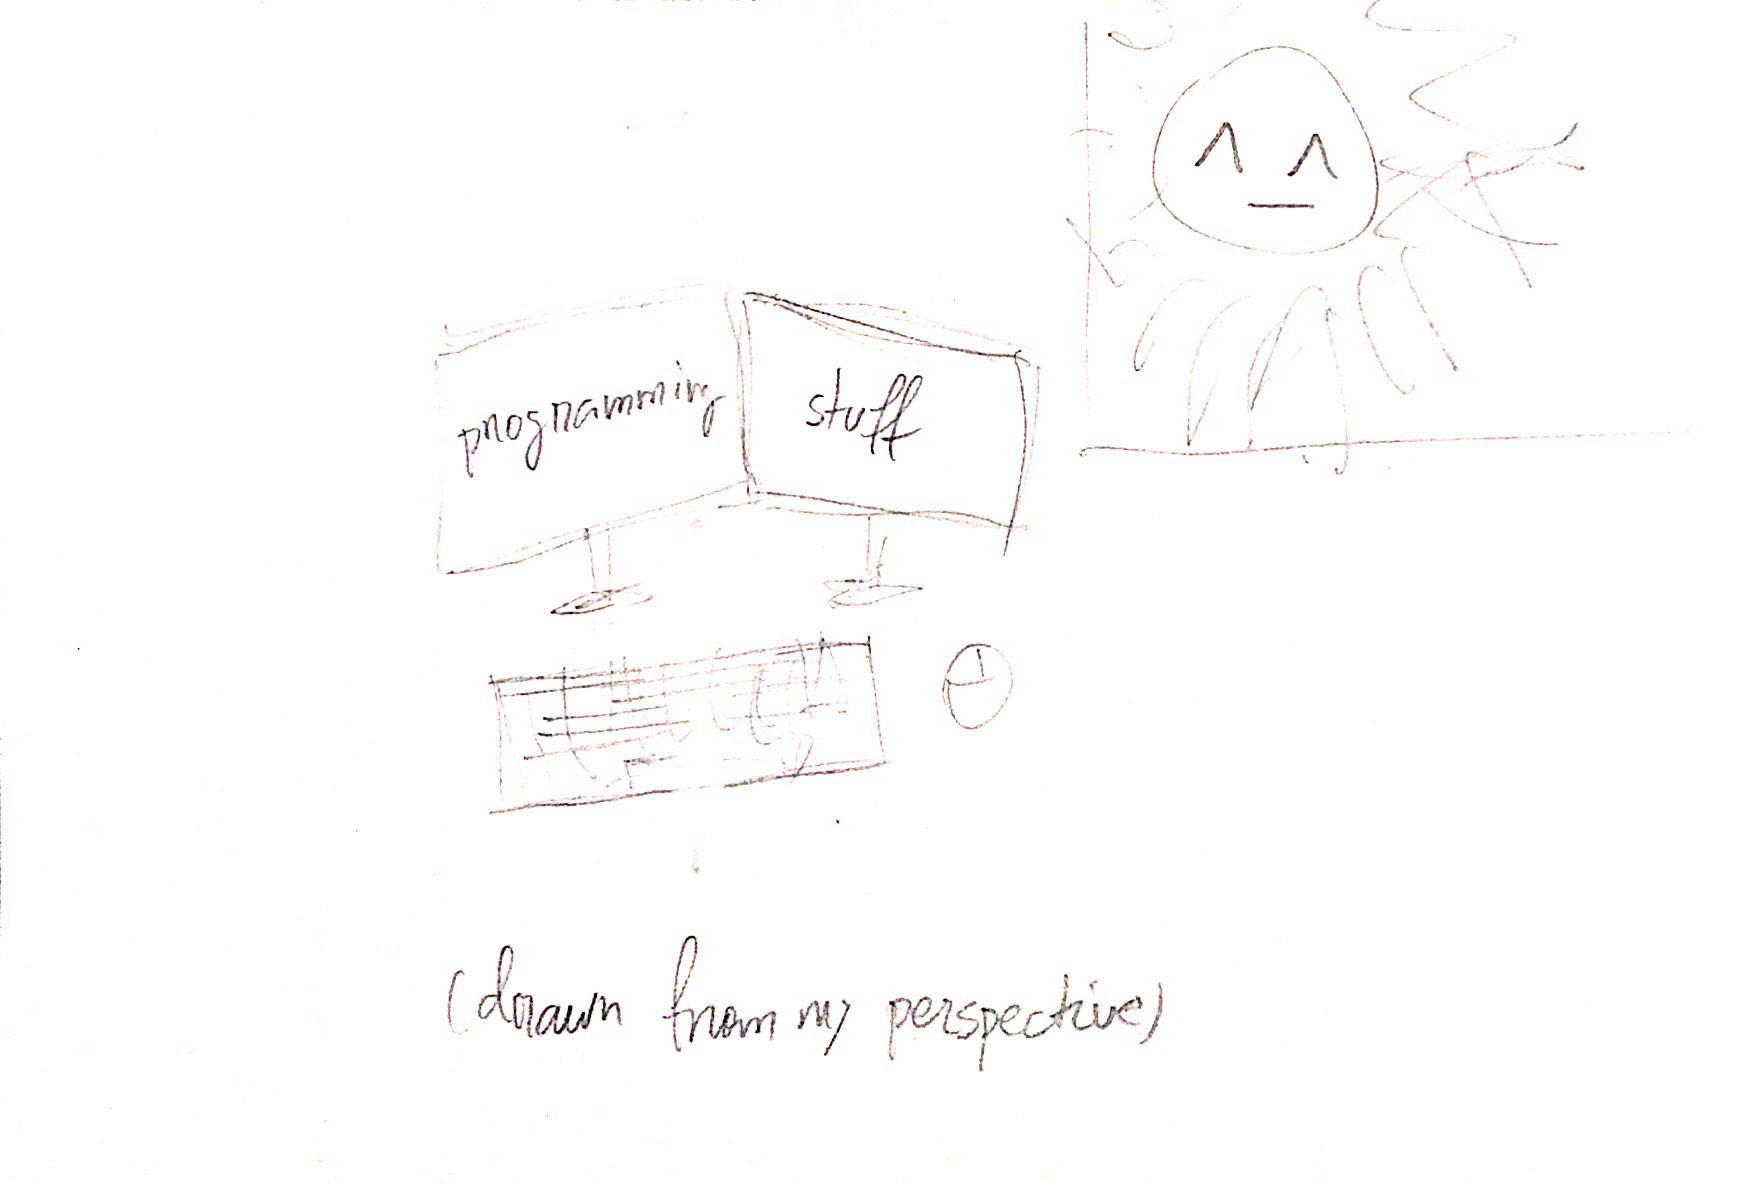 programming
stuff
(drawn from my perspective)